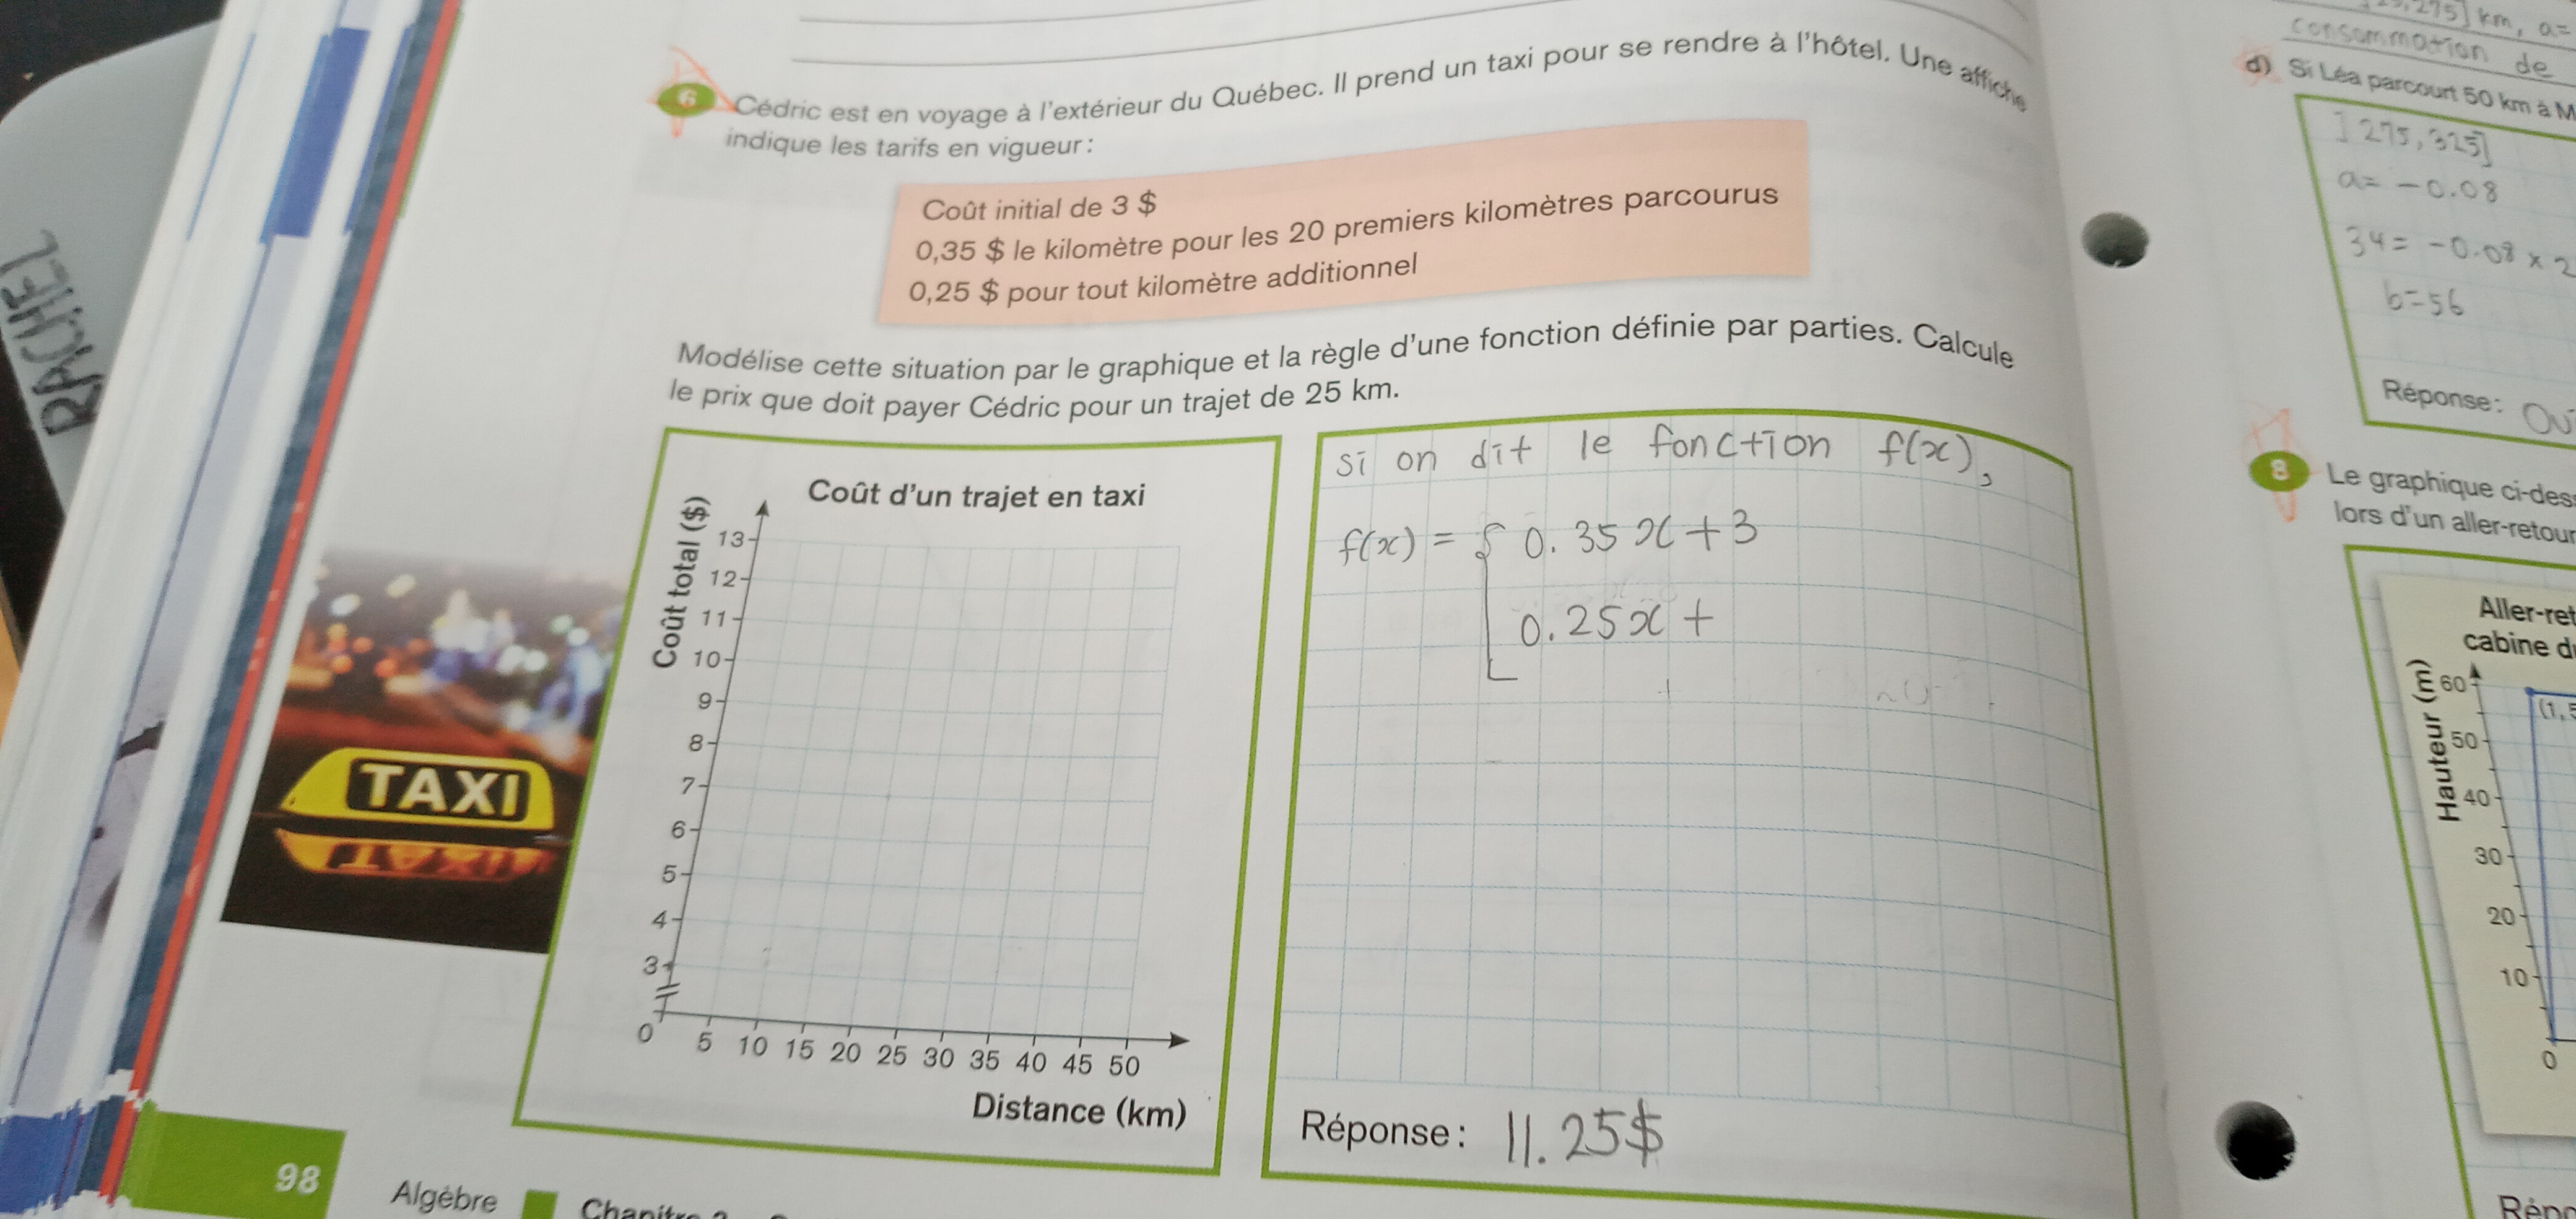 RACHEL
6 Cédric est en voyage à l'extérieur du Québec. Il prend un taxi pour se rendre à l'hôtel. Une affiche
indique les tarifs en vigueur :
Coût initial de 3 $
0,35 $ le kilomètre pour les 20 premiers kilomètres parcourus
0,25 $ pour tout kilomètre additionnel
Modélise cette situation par le graphique et la règle d'une fonction définie par parties. Calcule
le prix que doit payer Cédric pour un trajet de 25 km.
TAXI
Coût d'un trajet en taxi
Coût total ($)
13
12
11
10
9
8
7
6
5
4
3
0 5 10 15 20 25 30 35 40 45 50
Distance (km)
si on dit le fonction f(x),
f(x) = { 0.35x+3
0.25x+
Réponse : 11.25$
98 Algèbre Chapitre
275] km, a=
consommation de
d) Si Léa parcourt 50 km à M
]275,325]
a= -0.08
34= -0.08 × 2
b=56
Réponse : Oui
8 Le graphique ci-des
lors d'un aller-retour
Aller-ret
cabine d
Hauteur (m)
60
(1, 5
50
40
30
20
10
0
Rép